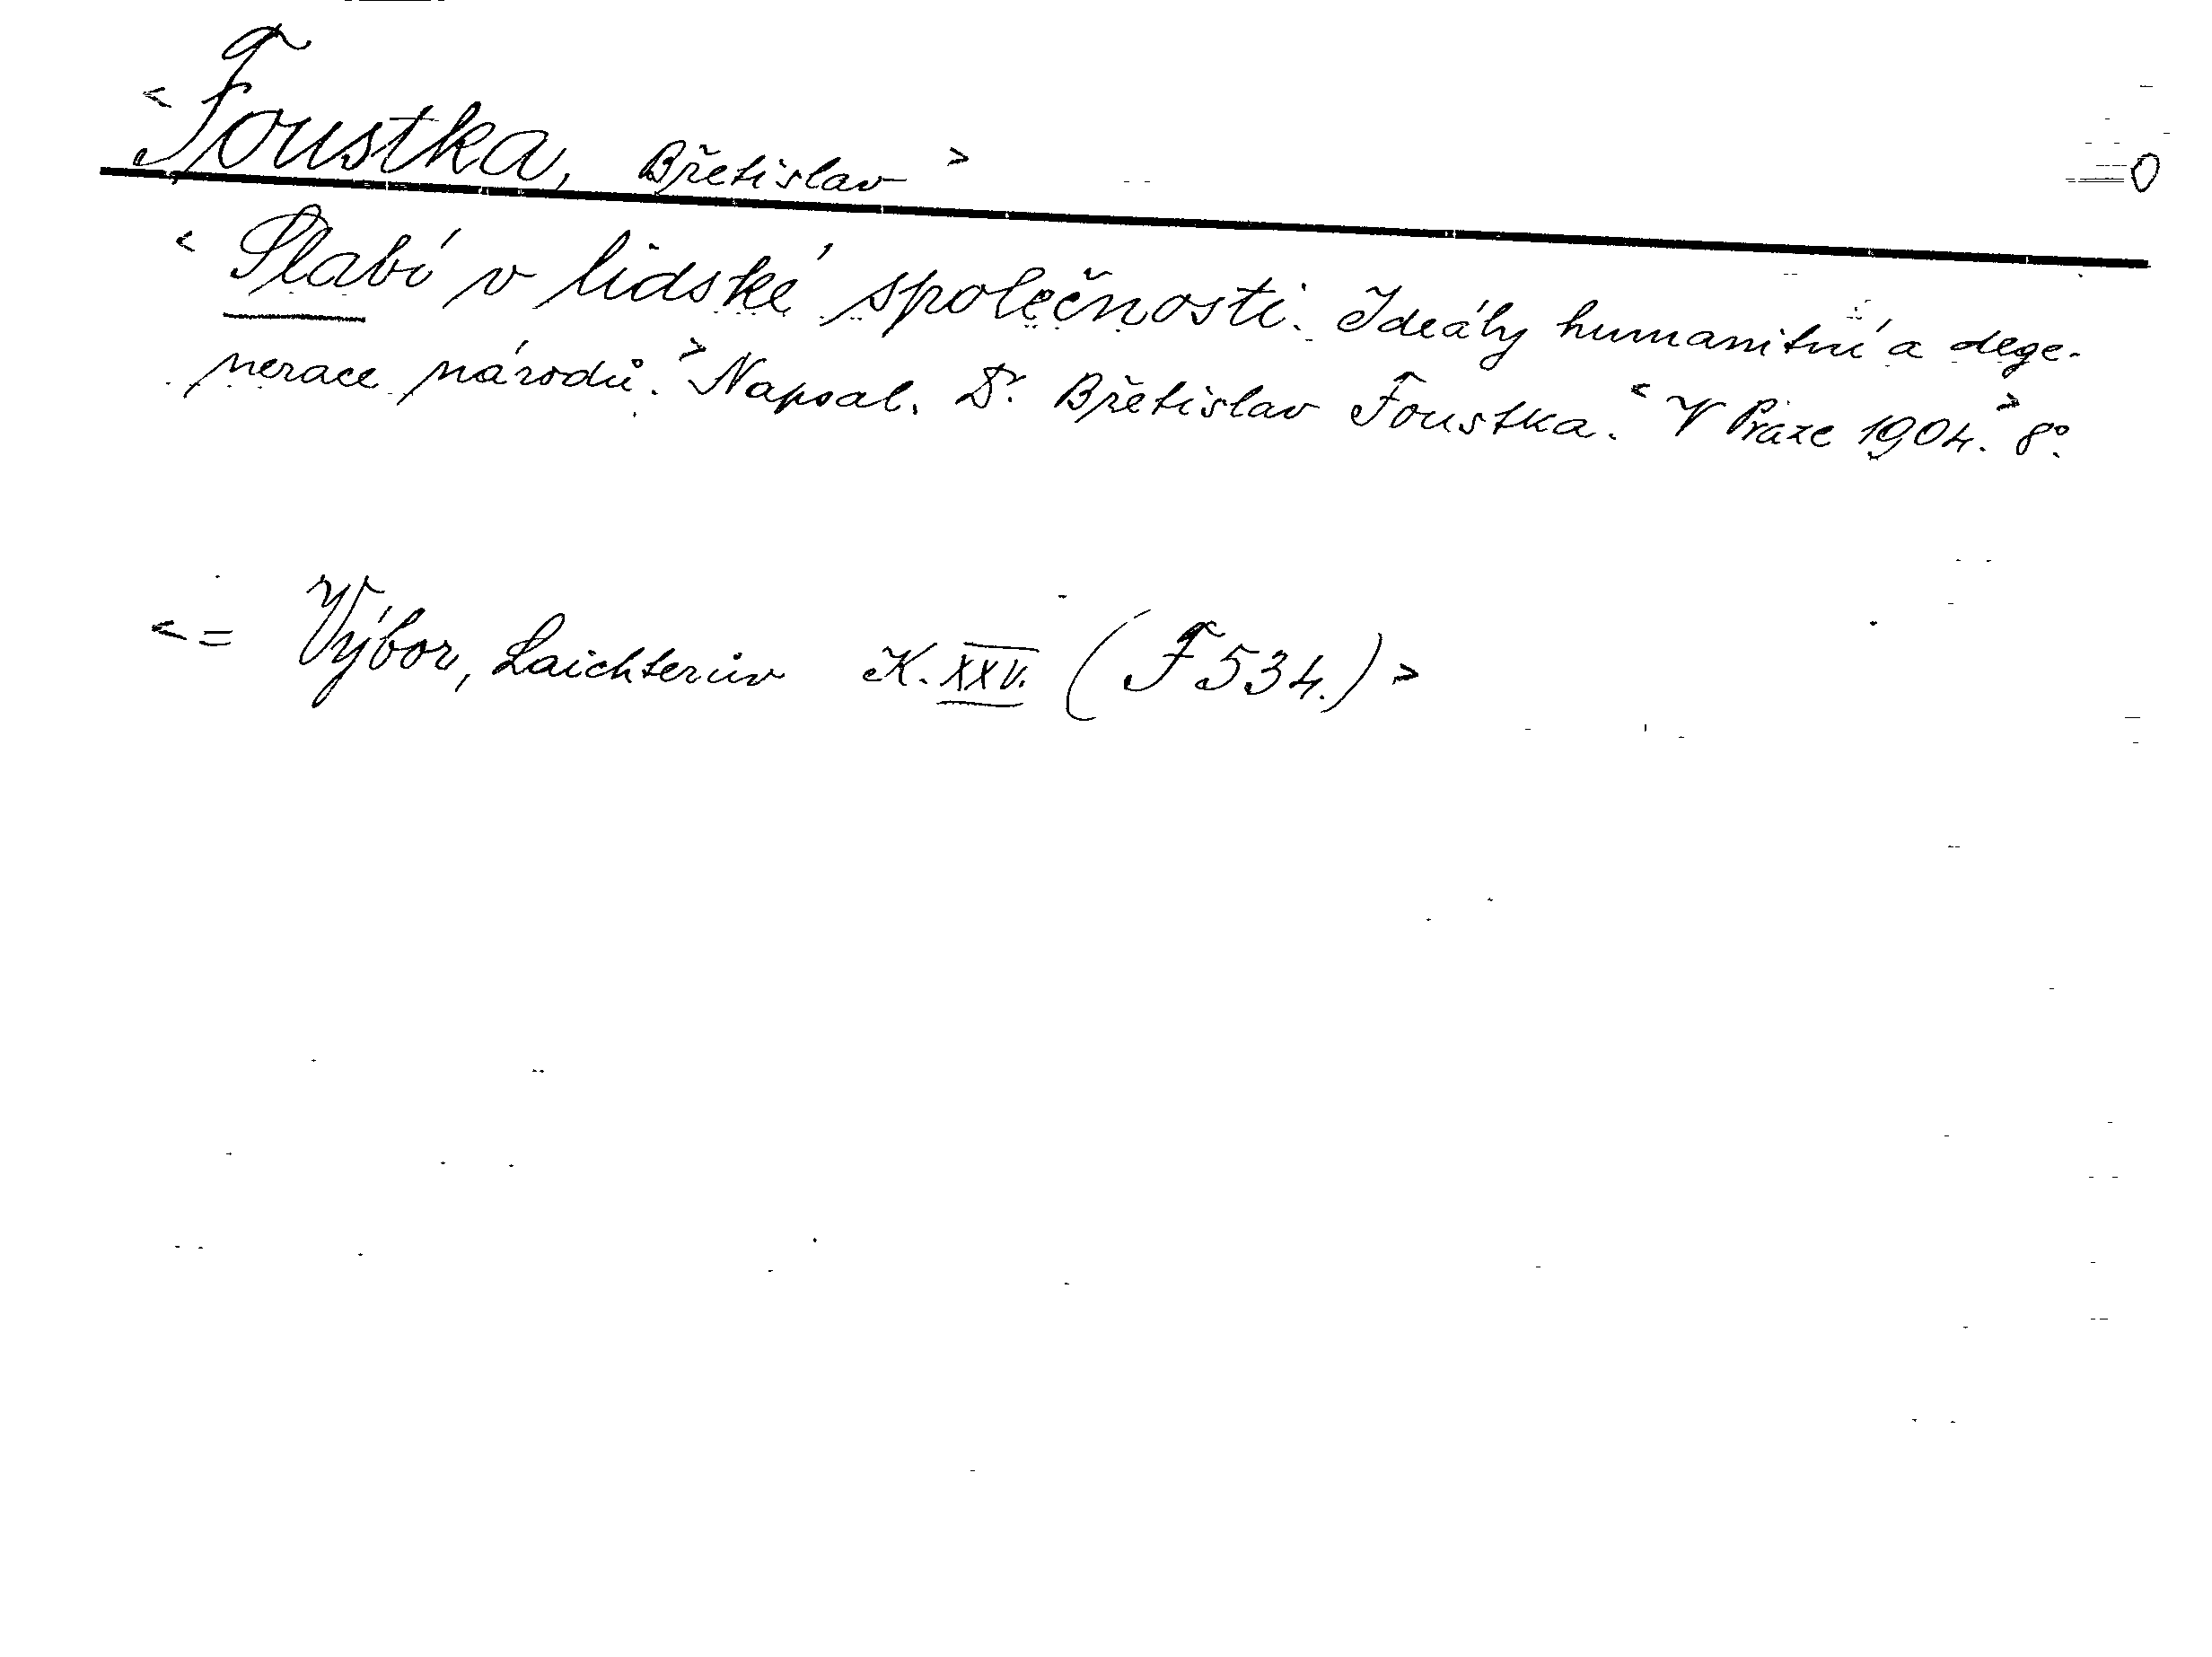 < Foustka, Břetislav >
0
< Slabí v lidské společnosti. Ideály humanitní a dege-
nerace národů. > Napsal. Dr. Břetislav Foustka. < V Praze 1904. > 8°.
< = Výbor, Laichterův K. XXV. (F 534.) >